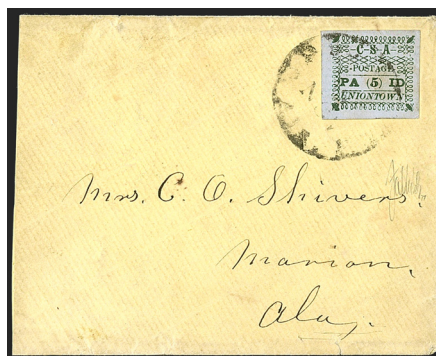 C-S-A
POSTAGE
PA (5) ID
UNIONTOWN
Mrs. C. O. Shivers.
Marion,
Ala,.